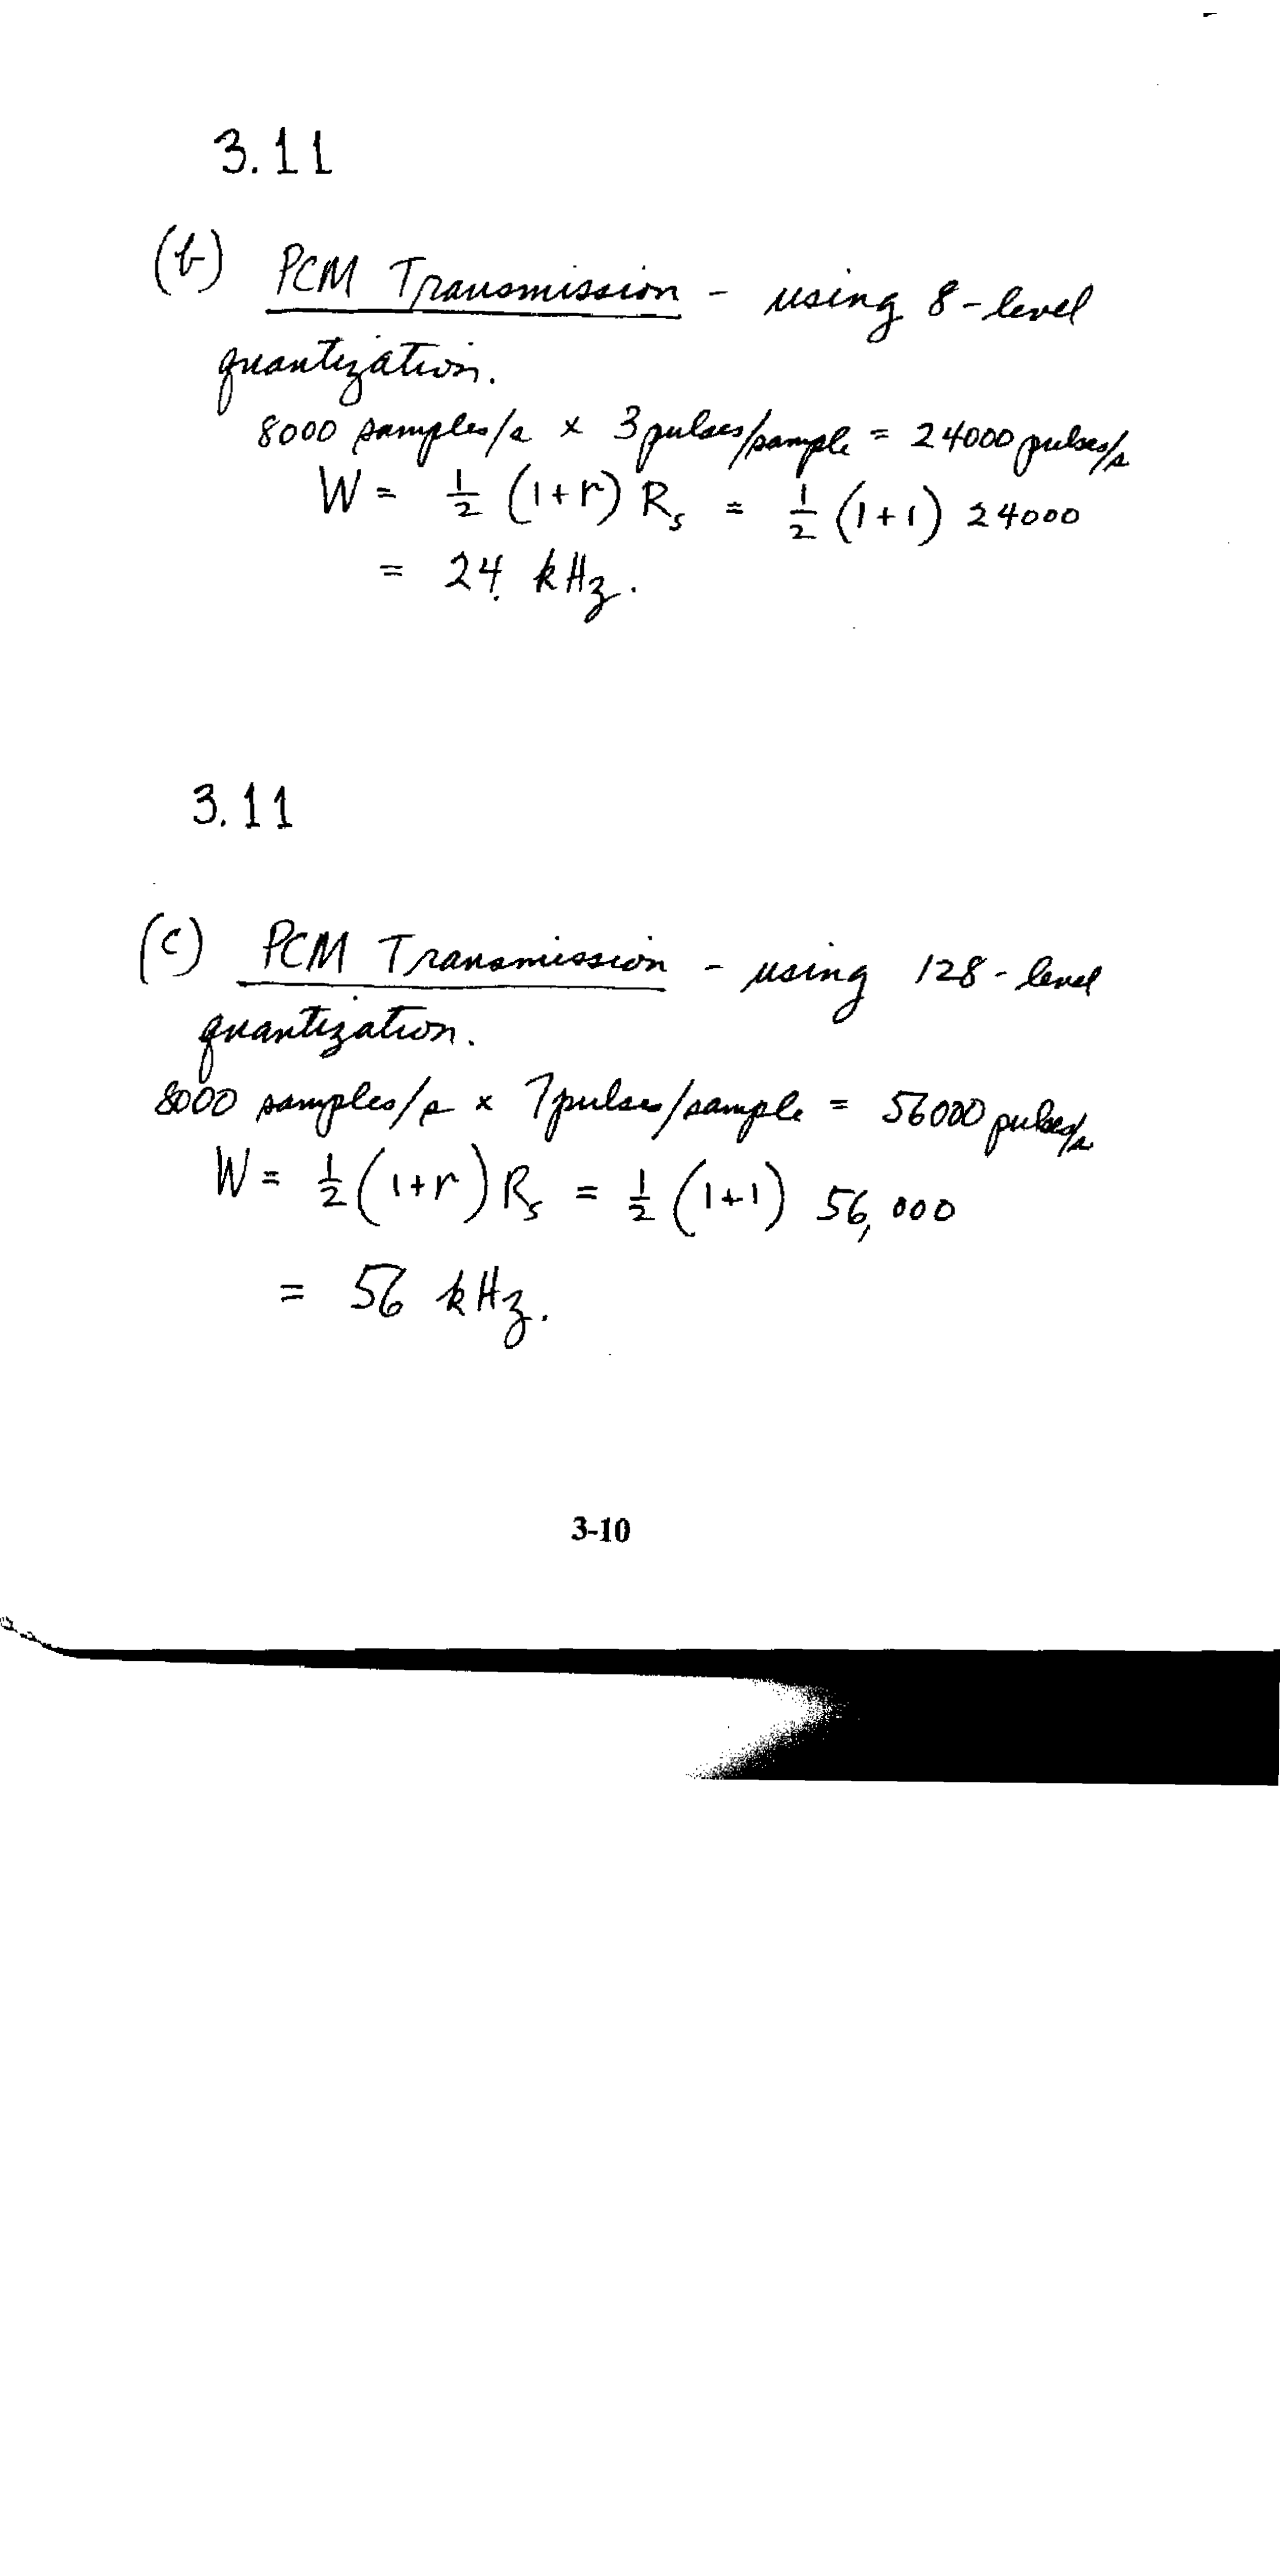 3.11
(b) PCM Transmission - using 8-level
quantization.
8000 samples/s x 3 pulses/sample = 24000 pulses/s
W = 1/2 (1+r) Rs = 1/2 (1+1) 24000
= 24 kHz.
3.11
(c) PCM Transmission - using 128-level
quantization.
8000 samples/s x 7 pulses/sample = 56000 pulses/s
W = 1/2 (1+r) Rs = 1/2 (1+1) 56,000
= 56 kHz.
3-10